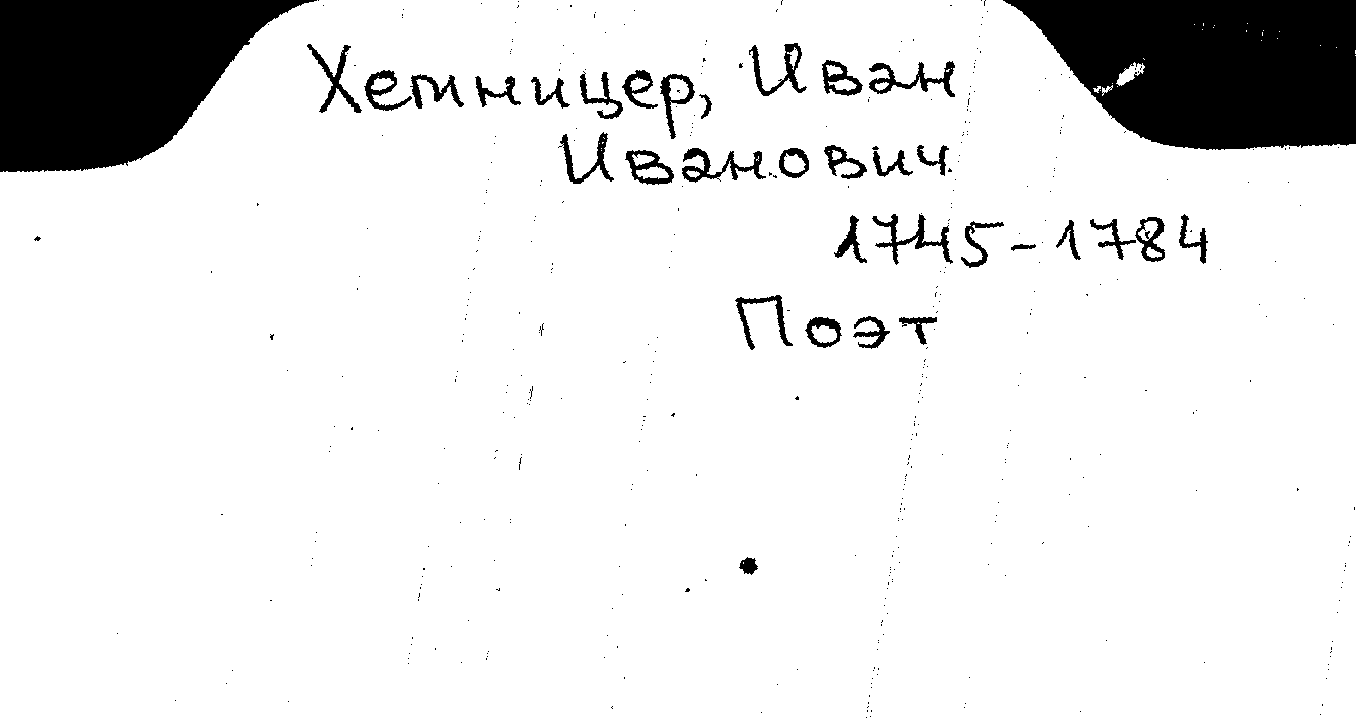 Хемницер, Иван
Иванович
1745-1784
Поэт